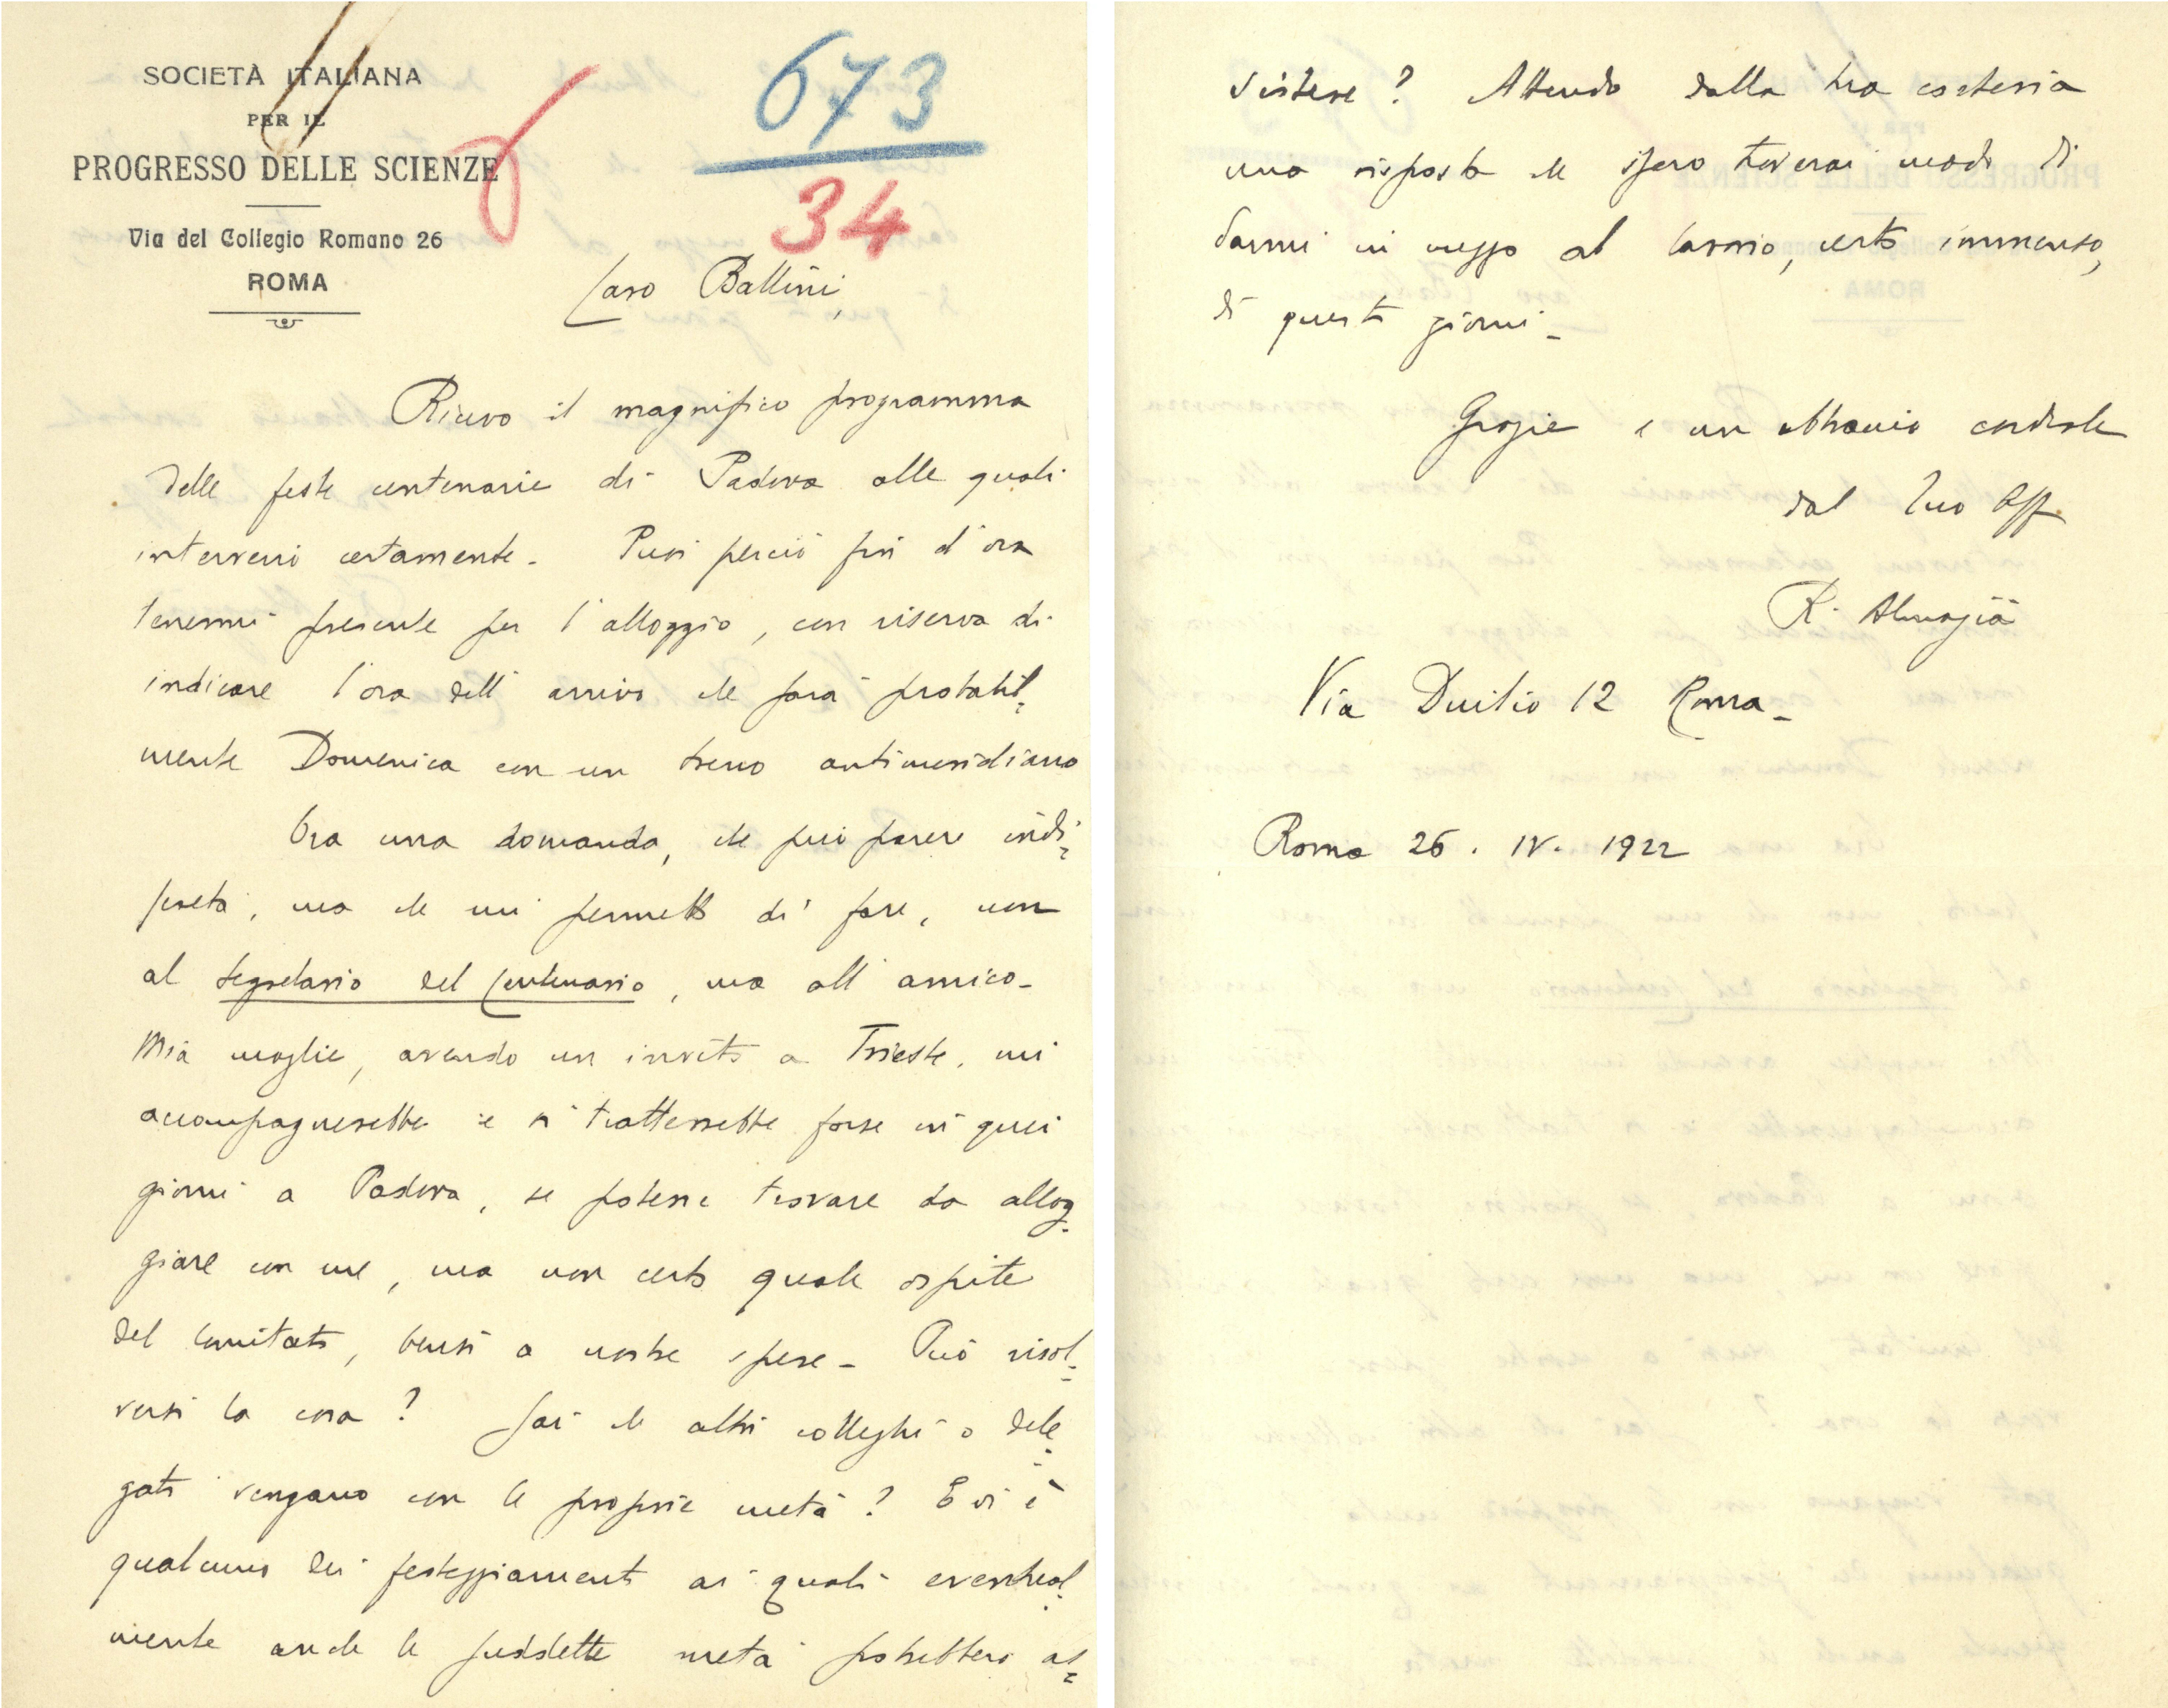 SOCIETÀ ITALIANA
PER IL
PROGRESSO DELLE SCIENZE
Via del Collegio Romano 26
ROMA
673
34
Caro Ballini,
Ricevo il magnifico programma
delle feste centenarie di Padova alle quali
interverrò certamente. Puoi perciò fin d'ora
tenermi presente per l'alloggio, con riserva di
indicare l'ora dell'arrivo che sarà probabil-
mente Domenica con un treno antimeridiano
Ora una domanda, che può parere indi-
screta, ma che mi permetto di fare, non
al segretario del Centenario, ma all'amico-
Mia moglie, avendo un invito a Trieste, mi
accompagnerebbe e si tratterrebbe forse in quei
giorni a Padova, se potessi trovare da allog-
giare con me, ma non certo quale ospite
del Comitato, bensì a nostre spese - Può risol-
versi la cosa? Sai che altri colleghi o dele-
gati vengano con le proprie metà? E vi è
qualcuno dei festeggiamenti ai quali eventual-
mente anche le suddette metà potrebbero as-
sistere? Attendo dalla tua cortesia
una risposta che spero troverai modo di
darmi in mezzo al lavoro, certo immenso,
di questi giorni -
Grazie e un abbraccio cordiale
dal tuo aff.
R. Almagià
Via Duilio 12 Roma -
Roma 26. IV. 1922